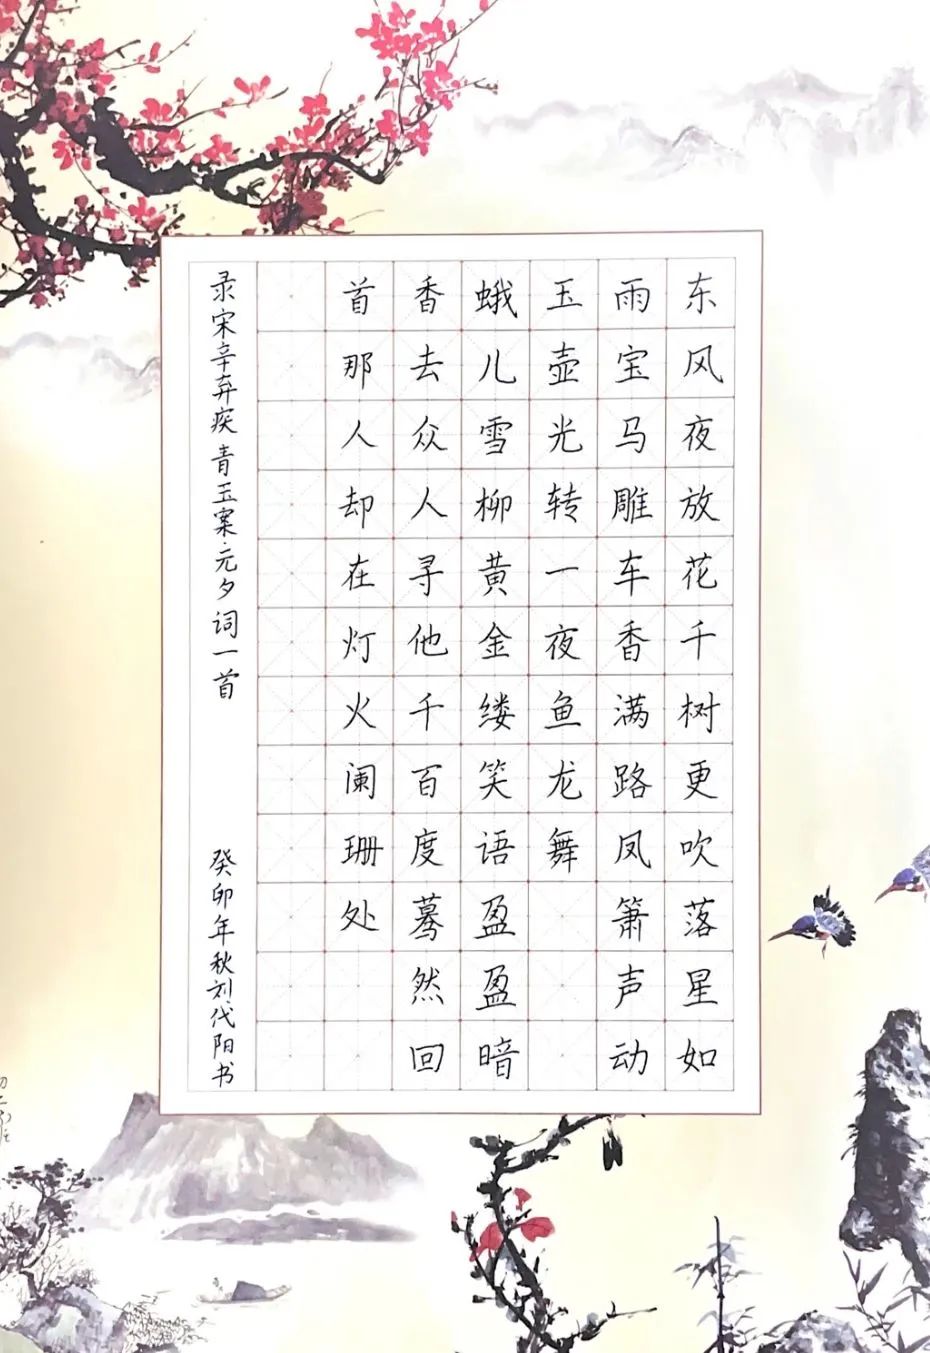 东风夜放花千树更吹落星如
雨宝马雕车香满路凤箫声动
玉壶光转一夜鱼龙舞
蛾儿雪柳黄金缕笑语盈盈暗
香去众人寻他千百度蓦然回
首那人却在灯火阑珊处
录宋辛弃疾青玉案元夕词一首
癸卯年秋刘代阳书